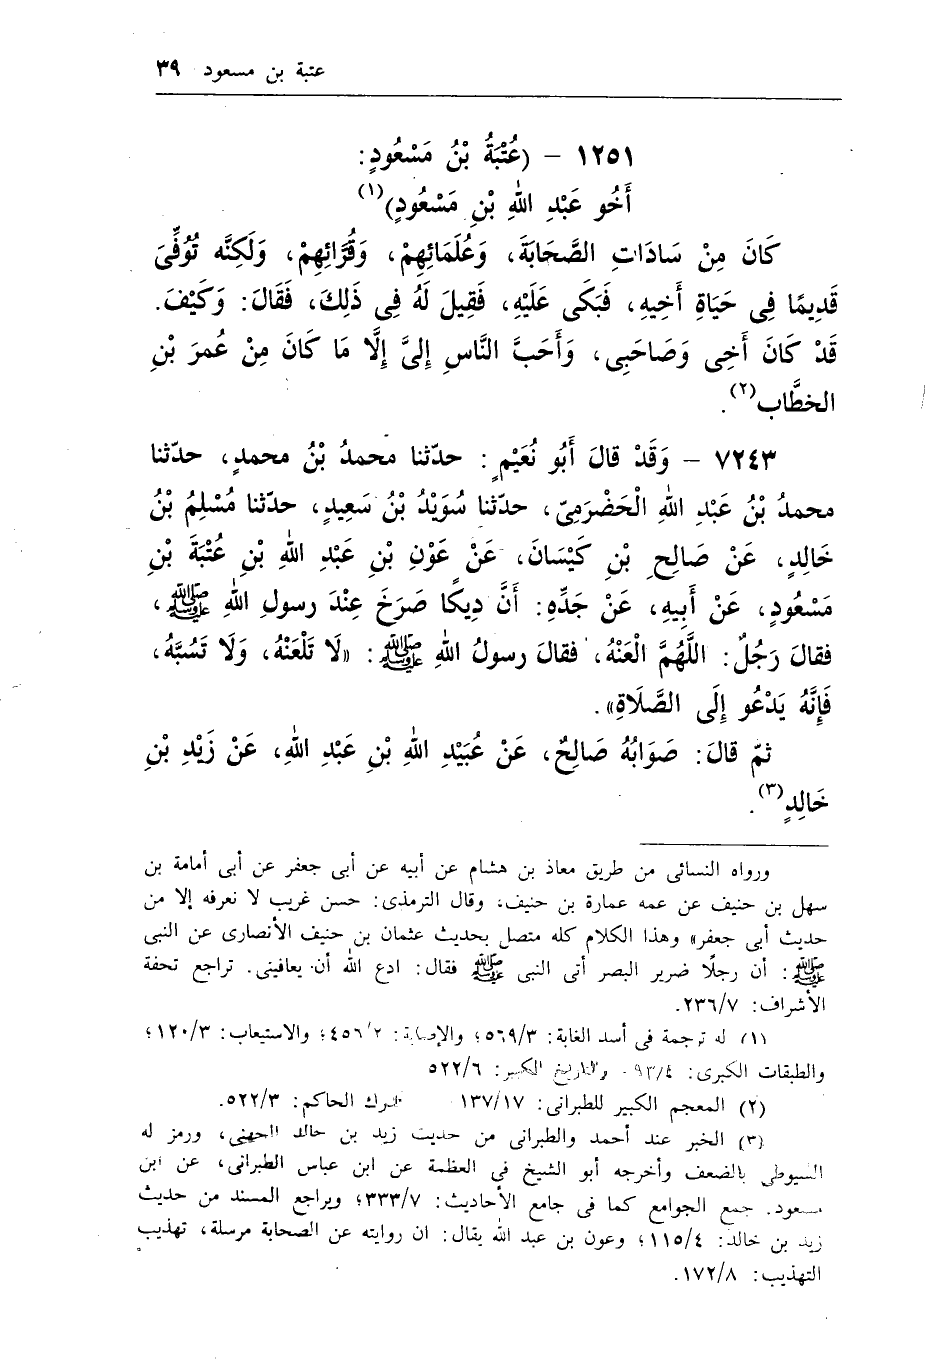 عتبة بن مسعود ٣٩
١٢٥١ – (عُتْبَةُ بْنُ مَسْعُودٍ:
أَخُو عَبْدِ اللهِ بْنِ مَسْعُودٍ)(١)
كَانَ مِنْ سَادَاتِ الصَّحَابَةَ، وَعُلَمَائِهِمْ، وَقُرَّائِهِمْ، وَلَكِنَّه تُوُفِّىَ
قَدِيمًا فِى حَيَاةِ أَخِيهِ، فَبَكَى عَلَيْهِ، فَقِيلَ لَهُ فِى ذَلِكَ، فَقَالَ: وَكَيْفَ.
قَدْ كَانَ أَخِى وَصَاحَبِى، وَأَحَبَّ النَّاسِ إِلىَّ إِلَّا مَا كَانَ مِنْ عُمرَ بْنِ
الخطَّاب(٢).
٧٢٤٣ – وَقَدْ قالَ أَبُو نُعَيْمٍ: حدّثنا محمدُ بْنُ محمدٍ، حدّثنا
محمدُ بْنُ عَبْدِ اللهِ الْحَضْرَمِىّ، حدّثنا سُوَيْدُ بْنُ سَعِيدٍ، حدّثنا مُسْلِمُ بْنُ
خَالِدٍ، عَنْ صَالِحِ بْنِ كَيْسَانَ، عَنْ عَوْنِ بْنِ عَبْدِ اللهِ بْنِ عُتْبَةَ بْنِ
مَسْعُودٍ، عَنْ أَبِيهِ، عَنْ جَدِّهِ: أَنَّ دِيكًا صَرَخَ عِنْدَ رسولِ اللهِ ﷺ،
فقالَ رَجُلٌ: اللَّهُمَّ الْعَنْهُ، فقالَ رسولُ اللهِ ﷺ: «لَا تَلْعَنْهُ، وَلَا تَسُبَّهُ،
فَإِنَّهُ يَدْعُو إِلَى الصَّلَاةِ».
ثمّ قالَ: صَوَابُهُ صَالِحٌ، عَنْ عُبَيْدِ اللهِ بْنِ عَبْدِ اللهِ، عَنْ زَيْدِ بْنِ
خَالِدٍ(٣).
ورواه النسائى من طريق معاذ بن هشام عن أبيه عن أبى جعفر عن أبى أمامة بن
سهل بن حنيف عن عمه عمارة بن حنيف، وقال الترمذى: حسن غريب لا نعرفه إلا من
حديث أبى جعفر» وهذا الكلام كله متصل بحديث عثمان بن حنيف الأنصارى عن النبى
ﷺ: أن رجلًا ضرير البصر أتى النبى ﷺ فقال: ادع الله أن يعافينى. تراجع تحفة
الأشراف: ٢٣٦/٧.
(١) له ترجمة فى أسد الغابة: ٥٦٩/٣؛ والإصابة: ٤٥٦/٢؛ والاستيعاب: ١٢٠/٣؛
والطبقات الكبرى: ٩٣/٤ والتاريخ الكبير: ٥٢٢/٦
(٢) المعجم الكبير للطبرانى: ١٣٧/١٧ الحاكم: ٥٢٢/٣.
(٣) الخبر عند أحمد والطبرانى من حديث زيد بن خالد الجهنى، ورمز له
السيوطى بالضعف وأخرجه أبو الشيخ فى العظمة عن ابن عباس الطبرانى، عن ابن
مسعود. جمع الجوامع كما فى جامع الأحاديث: ٣٣٣/٧؛ ويراجع المسند من حديث
زيد بن خالد: ١١٥/٤؛ وعون بن عبد الله يقال: ان روايته عن الصحابة مرسلة، تهذيب
التهذيب: ١٧٢/٨.